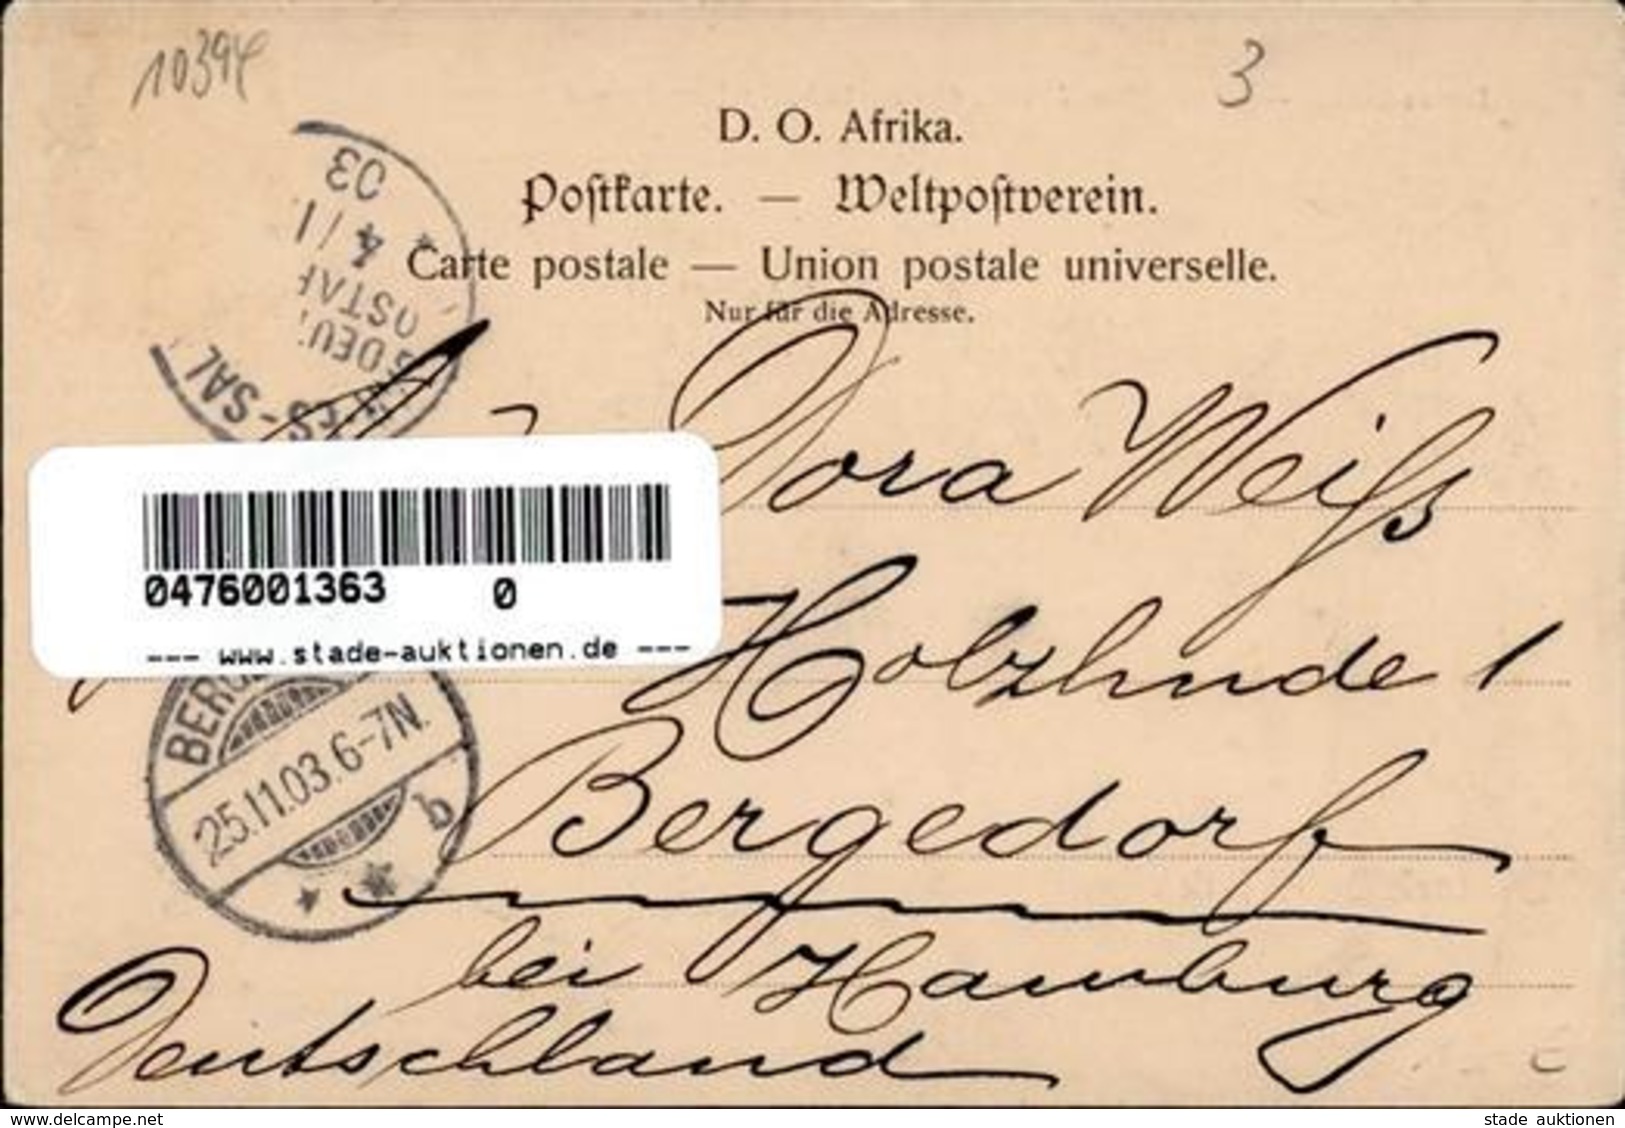 10394
3
D. O. Afrika.
Postkarte. — Weltpostverein.
Carte postale — Union postale universelle.
Nur für die Adresse.
03
4/1
OSTAF
DEUT
ES-SAL
Dora Weiss
0476001363 0
--- www.stade-auktionen.de ---
Holzhude 1
BERG
25.11.03.6-7N.
b
Bergedorf
bei Hamburg
Deutschland
www.delcampe.net
stade auktionen